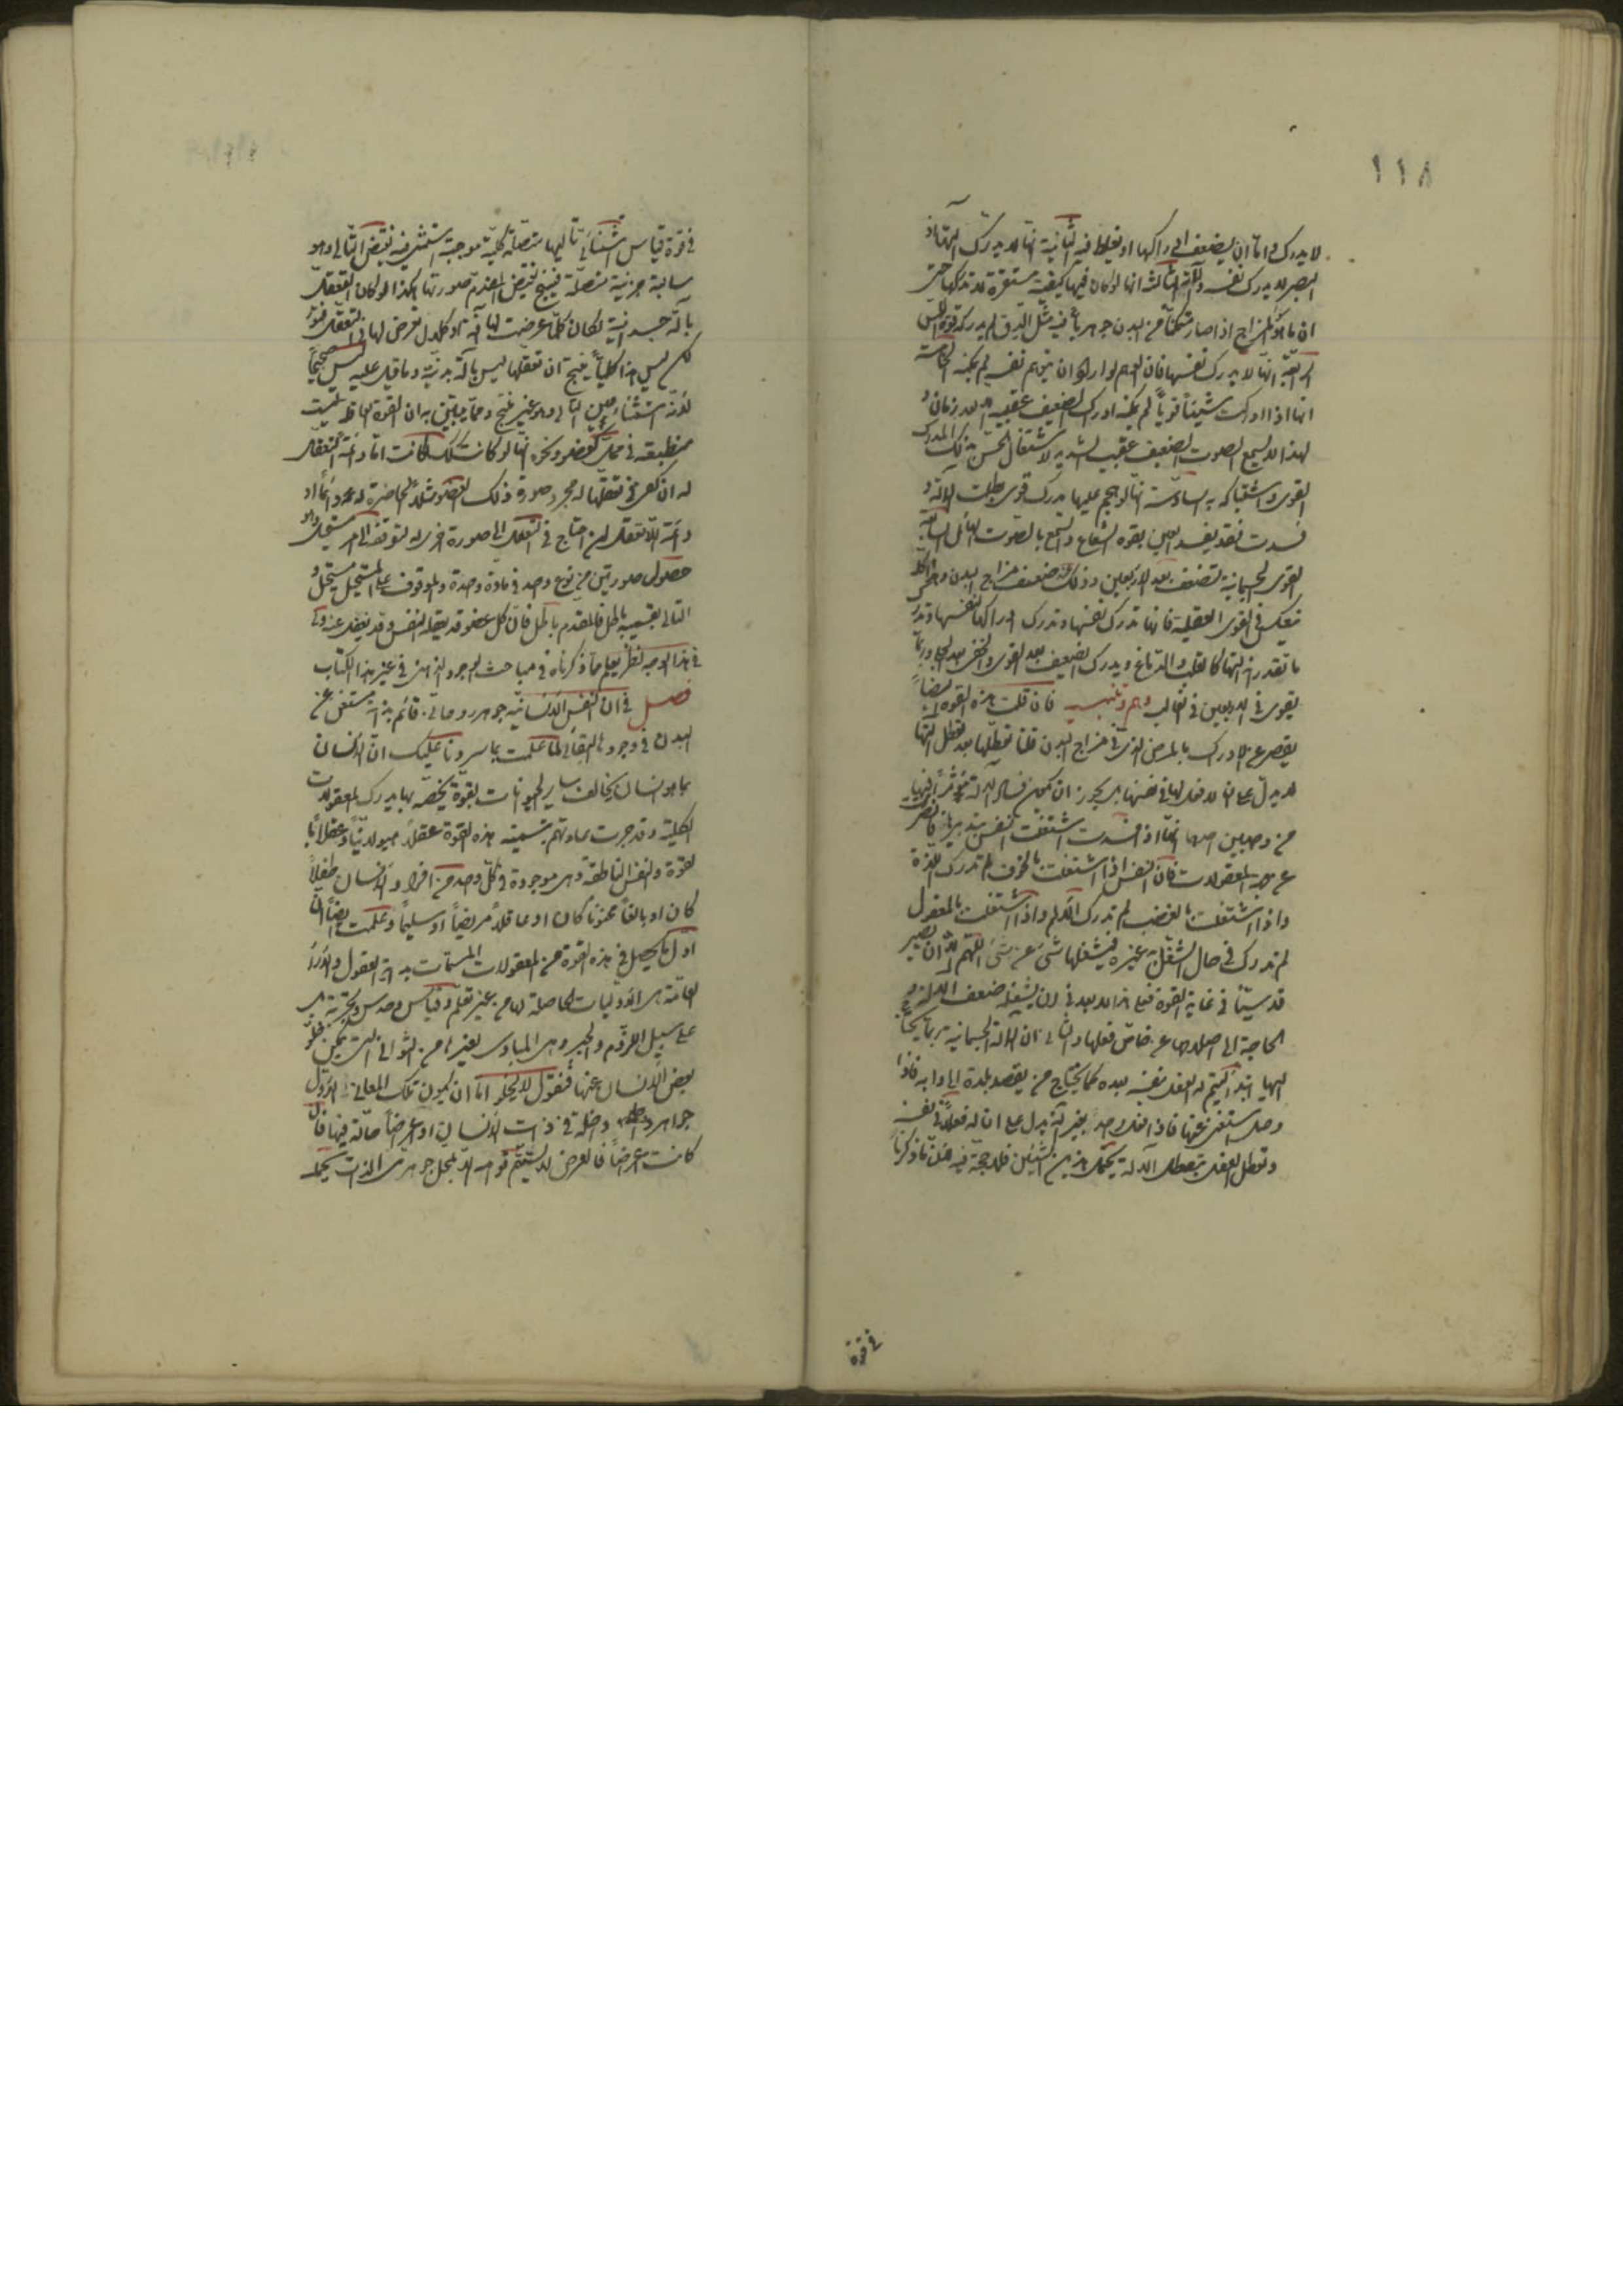 ١١٨
لا يدرك واما ان يضعف ادراكها او تغلط فيه الثانية انها لا يدرك آلتها اذ
البصر لا يدرك نفسه وآلته الثالثة انها لو كان فيها كيفية مستقرة لا تدركها حتى
ان ما هو المزاج اذا صار متمكنا من البدن جوهريا فيه مثل الدق لم يدركه قوة اللمس
الرابعة انها لا يدرك نفسها فان الوهم لو اراد ان يتوهم نفسه لم يمكنه الخامسة
انها اذا ادركت شيئا قويا لم يمكنه ادراك الضعيف عقيبه الا بعد زمان و
لهذا لا يسمع الصوت الضعيف عقيب الشديد لاشتغال الحس بذلك المدرك
القوى واشتباكه به السادسة انها لو هجم عليها مدرك قوى بطلت الآلة و
فسدت فقد يفسد العين بقوة الشعاع والسمع بالصوت الهائل السابعة
القوى الجسمانية تضعف بعد الاربعين وذلك عند ضعف مزاج البدن وهذا كله
ينعكس فى القوى العقلية فانها تدرك نفسها وتدرك ادراكها لنفسها وتدرك
ما تقدر انه آلتها كالقلب والدماغ ويدرك الضعيف بعد القوى والخفى بعد الجلى وربما
يقوى فى الاربعين فى الغالب وهم وتنبيه فان قلت هذه القوة ايضا
يقصر عن الادراك بالمرض الذى فى مزاج البدن قلنا تعطلها بعد تعطل آلتها
لا يدل على ان لا فعل لها فى نفسها بل يجوز ان يكون فساد الآلة مؤثرا فيها
من وجهين احدهما انها اذا فسدت اشتغلت النفس بتدبيرها فانصرفت
عن جهة المعقولات فان النفس اذا اشتغلت بالخوف لم تدرك اللذة
واذا اشتغلت بالغضب لم تدرك الالم واذا اشتغلت بالمعقول
لم تدرك فى حال الشغل به غيره فيشغلها شئ عن شئ اللهم الا ان يصير
قدسيا فى غاية القوة فعلى هذا لا بعد فى ان يشغله ضعف الآلة و
الحاجة الى اصلاحها عن خاص فعلها والثانى ان الآلة الجسمانية ربما يحتاج
اليها ابتداء ليتم له الفعل بنفسه بعده كما يحتاج من يقصد بلدة الى دابة فاذا
وصل استغنى عنها فاذا فعل واحد بغير آلة يدل على ان له فعلا فى نفسه
وتعطل الفعل بتعطل الآلة يحتمل هذين الشيئين فلا حجة فيه فان ما ذكرنا
فى قوة
فى قوة قياس استثنائى تاليها متصلة كلية موجبة استثنى فيه نقيض التالى وهو
سالبة جزئية متصلة فينتج نقيض المقدم صورتها هكذا لو كان التعقل
بآلة جسدانية لكان كلما عرضت لها آفة او كلال تعرض لها فى التعقل فتور
لكن ليس هذا كليا ينتج ان تعقلها ليس بآلة بدنية وما قيل عليه ليس صحيحا
لانه استثناء عين التالى وهو غير منتج ومما يبين به ان القوة العاقلة ليست
منطبعة فى محل كعضو ونحوه انها لو كانت كذلك لكانت اما دائمة التعقل
له ان كفى فى تعقلها له مجرد صورة ذلك العضو مثلا الحاضرة له دائما او
دائمة اللاتعقل ان احتاج فى التعقل الى صورة اخرى له لتوقفه الى امر مستحيل وهو
حصول صورتين من نوع واحد فى مادة واحدة والموقوف على المستحيل مستحيل و
التالى بقسميه باطل فالمقدم باطل فان كل عضو قد يعقله النفس وقد يغفل عنه ولى
فى هذا الوجه نظر يعلم مما ذكرناه فى مباحث الوجود الذهنى فى غير هذا الكتاب
فصل فى ان النفس الانسانية جوهر روحانى قائم بذاته مستغن عن
البدن فى وجوده البقائى لما علمت بما سردنا عليك ان الانسان
بما هو انسان يخالف ساير الحيوانات بقوة يخصه بها يدرك المعقولات
الكلية وقد جرت عادتهم بتسمية هذه القوة عقلا هيولانيا وعقلا بال
القوة والنفس الناطقة وهى موجودة فى كل واحد من افراد الانسان طفلا
كان او بالغا مجنونا كان او عاقلا مريضا او سليما وعلمت ايضا ان
اول ما يحصل فى هذه القوة من المعقولات المسمات بداية العقول والآراء
العامة هى الاوليات الحاصلة لها من غير تعلم وقياس وحدس وتجربة بل
على سبيل اللزوم والجبر وهى المبادى لغيرها من الثوانى التى يمكن خلو
بعض الانسان عنها فنقول لا يخلو اما ان يكون تلك المعانى الاول
جواهر داخلة فى ذات الانسان او اعراضا حالة فيها فان
كانت اعراضا فالعرض لا يستتم قوامه الا بمحل جوهرى الذات يحله